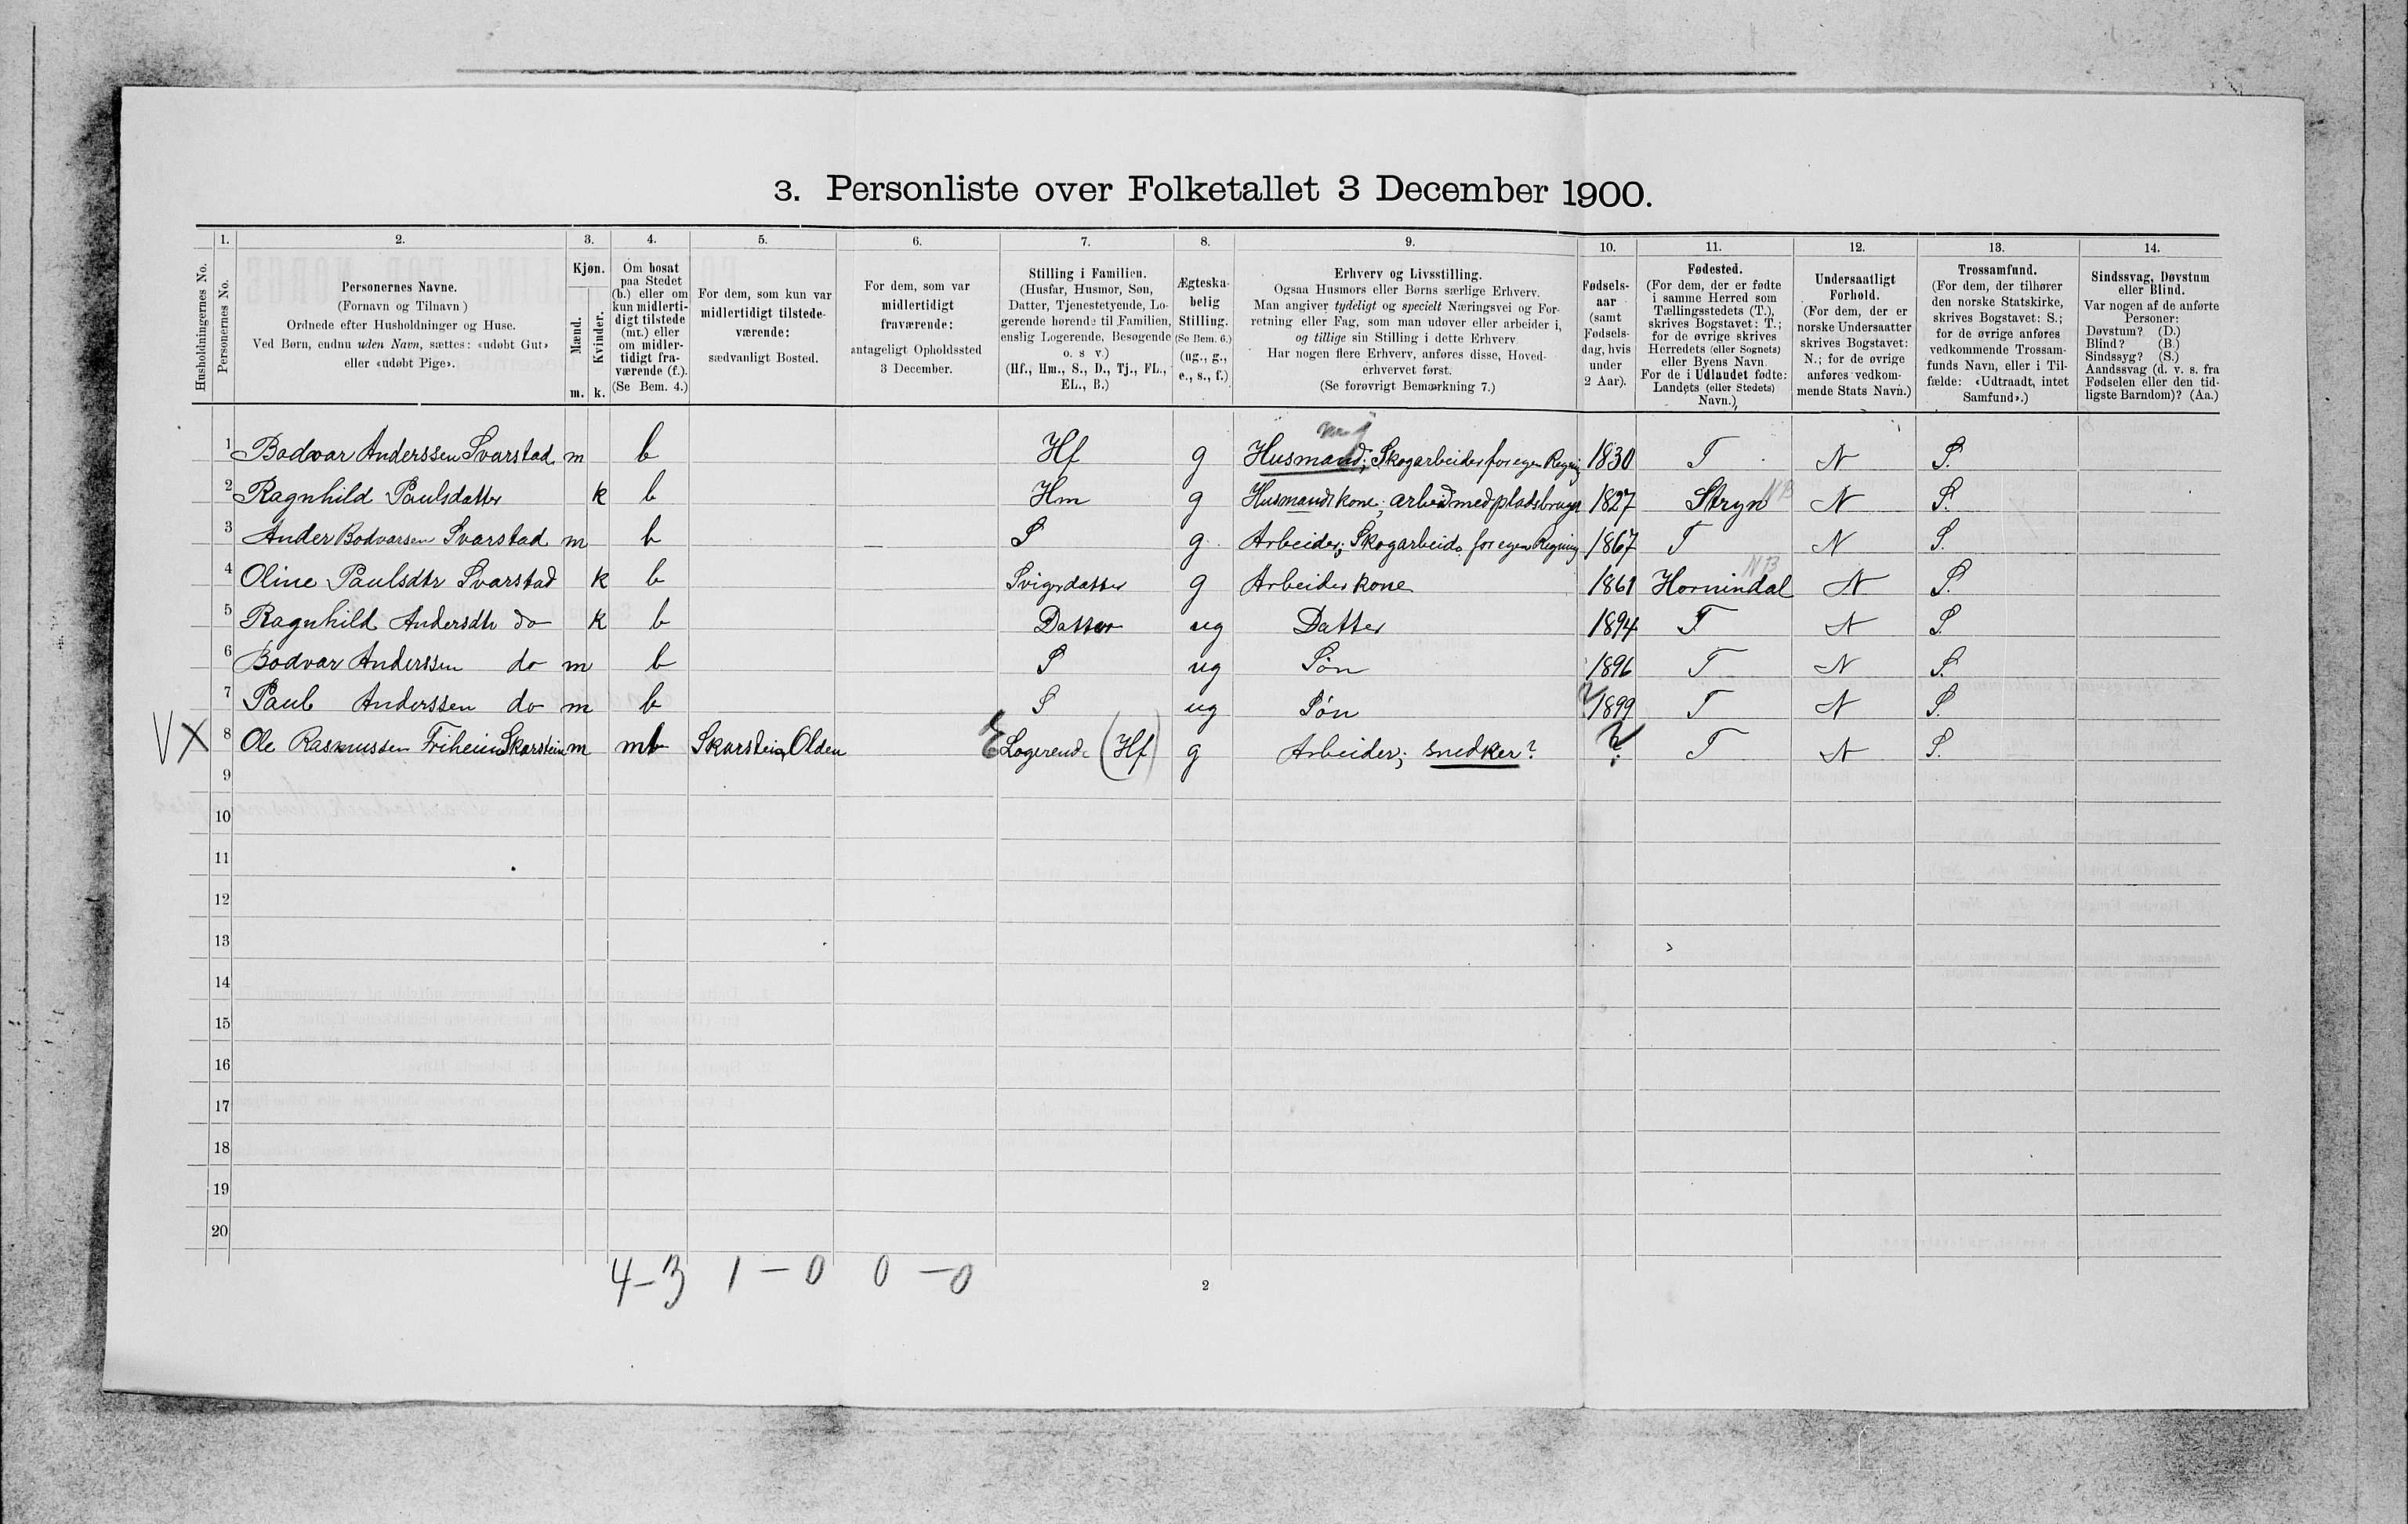 3. Personliste over Folketallet 3 December 1900.
1. 2. 3. 4. 5. 6. 7. 8. 9. 10. 11. 12. 13. 14.
Husholdningernes No.
Personernes No.
Personernes Navne.
(Fornavn og Tilnavn)
Ordnede efter Husholdninger og Huse.
Ved Børn, endnu uden Navn, sættes: «udøbt Gut»
eller «udøbt Pige».
Kjøn.
Mænd.
Kvinder.
m. k.
Om bosat
paa Stedet
(b.) eller om
kun midlerti-
digt tilstede
(mt.) eller
om midler-
tidigt fra-
værende (f.).
(Se Bem. 4.)
For dem, som kun var
midlertidigt tilstede-
værende:
sædvanligt Bosted.
For dem, som var
midlertidigt
fraværende:
antageligt Opholdssted
3 December.
Stilling i Familien.
(Husfar, Husmor, Søn,
Datter, Tjenestetyende, Lo-
gerende hørende til Familien,
enslig Logerende, Besøgende
o. s v.)
(Hf., Hm., S., D., Tj., FL.,
EL., B.)
Ægteska-
belig
Stilling.
(Se Bem. 6.)
(ug., g.,
e., s., f.)
Erhverv og Livsstilling.
Ogsaa Husmors eller Børns særlige Erhverv.
Man angiver tydeligt og specielt Næringsvei og For-
retning eller Fag, som man udøver eller arbeider i,
og tillige sin Stilling i dette Erhverv.
Har nogen flere Erhverv, anføres disse, Hoved-
erhvervet først.
(Se forøvrigt Bemærkning 7.)
Fødsels-
aar
(samt
Fødsels-
dag, hvis
under
2 Aar).
Fødested.
(For dem, der er fødte
i samme Herred som
Tællingsstedets (T.),
skrives Bogstavet: T.;
for de øvrige skrives
Herredets (eller Sognets)
eller Byens Navn.
For de i Udlandet fødte:
Landets (eller Stedets)
Navn.)
Undersaatligt
Forhold.
(For dem, der er
norske Undersaatter
skrives Bogstavet:
N.; for de øvrige
anføres vedkom-
mende Stats Navn.)
Trossamfund.
(For dem, der tilhører
den norske Statskirke,
skrives Bogstavet: S.;
for de øvrige anføres
vedkommende Trossam-
funds Navn, eller i Til-
fælde: «Udtraadt, intet
Samfund».)
Sindssvag, Døvstum
eller Blind.
Var nogen af de anførte
Personer:
Døvstum? (D.)
Blind? (B.)
Sindssyg? (S.)
Aandssvag (d. v. s. fra
Fødselen eller den tid-
ligste Barndom)? (Aa.)
1 Bodvar Anderssen Svarstad m b Hf g Husmand; Skogarbeider for egen Regning 1830 T N S.
2 Ragnhild Paulsdatter k b Hm g Husmandskone; arbeid med pladsbruget 1827 Stryn NB N S.
3 Ander Bodvarsen Svarstad m b S g Arbeider; Skogarbeide for egen Regning 1867 T N S.
4 Oline Paulsdtr Svarstad k b Svigerdatter g Arbeiderkone 1861 Hornindal NB N S.
5 Ragnhild Andersdtr do k b Datter ug Datter 1894 T N S.
6 Bodvar Anderssen do m b S ug Søn 1896 T N S.
7 Paul Anderssen do m b S ug Søn 1899 T N S.
V X 8 Ole Rasmussen Friheim Skarstein m mt Skarstein, Olden E Logerende (Hf) g Arbeider; snedker? ? T N S.
9
10
11
12
13
14
15
16
17
18
19
20
4 – 3 1 – 0 0 – 0
2